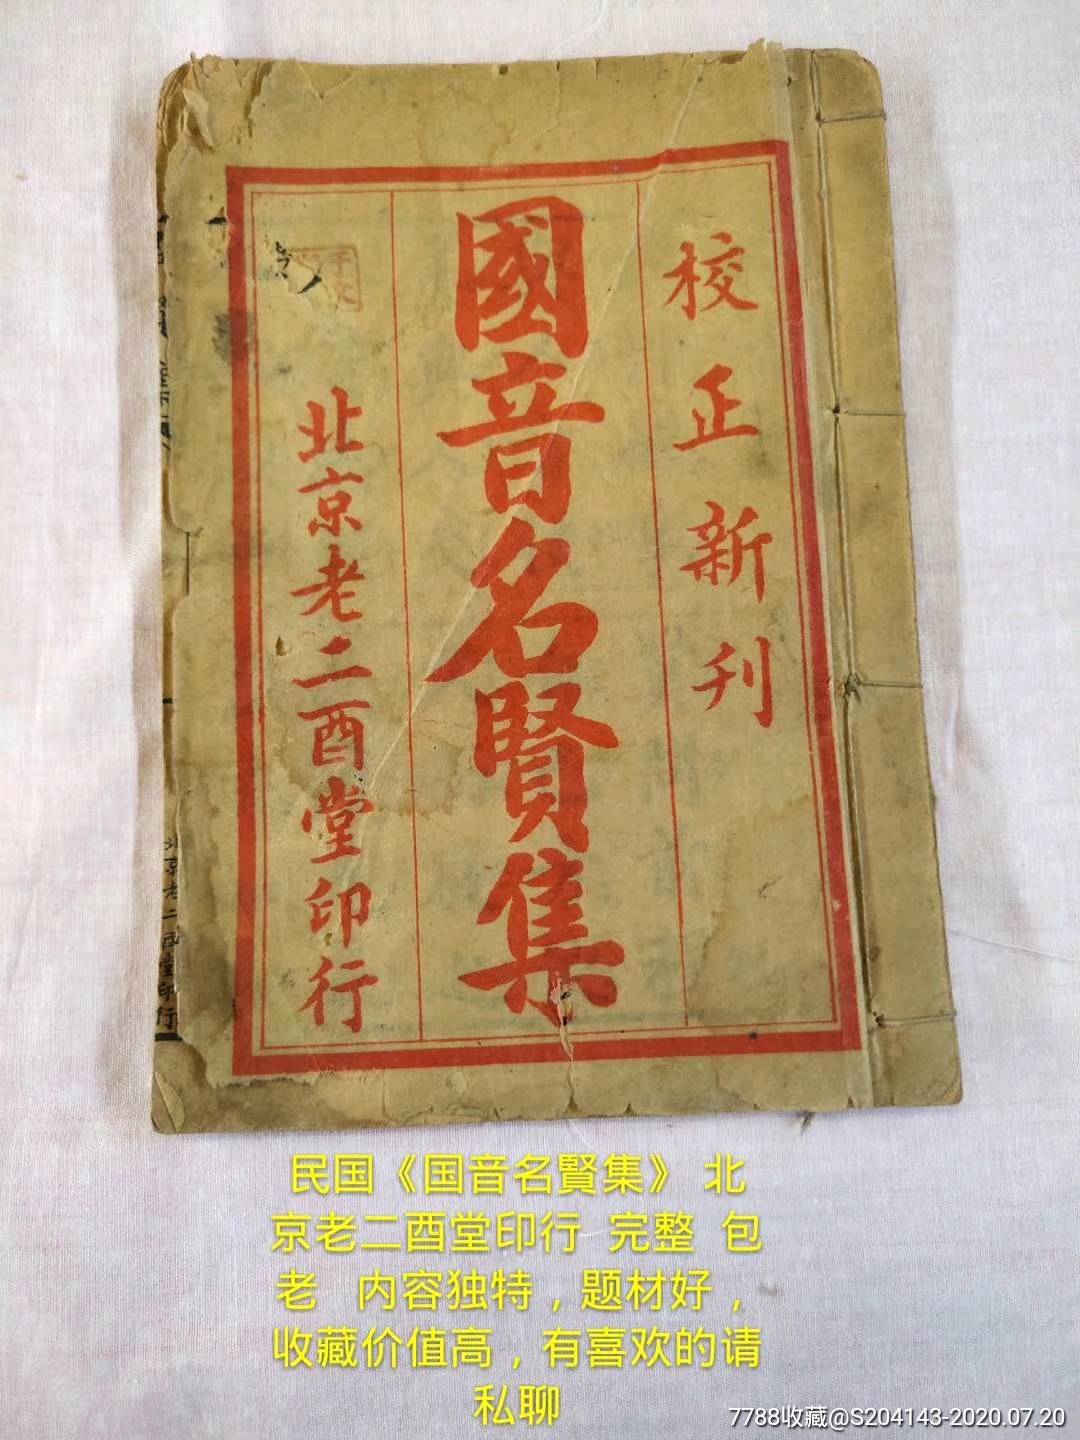 校正新刊
國音名賢集
北京老二酉堂印行
北京老二酉堂印行
民国《国音名賢集》 北
京老二酉堂印行 完整 包
老 内容独特，题材好，
收藏价值高，有喜欢的请
私聊
7788收藏@S204143-2020.07.20